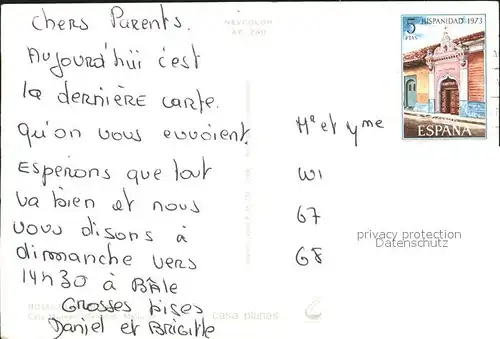 Chers Parents.
Aujourd'hui c'est
la dernière carte.
qu'on vous envoient.
Esperons que tout
va bien et nous
vous disons à
dimanche vers
14h30 à Bâle
Grosses bises
Daniel et Brigitte
NEVCOLOR
casa planas
5
PTAS
HISPANIDAD 1973
ESPAÑA
Mr et Mme
W1
67
68
privacy protection
Datenschutz